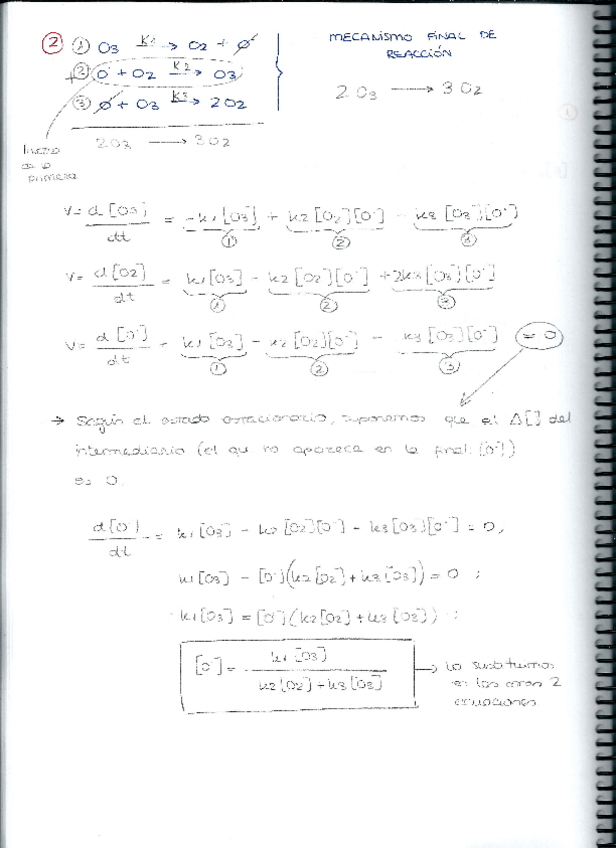 2 ① O3 K1→ O2 + O·
MECANISMO FINAL DE
REACCIÓN
+② O· + O2 K2→ O3
③ O· + O3 K3→ 2O2
2 O3 → 3 O2
2O3 → 3O2
Inverso
de la
primera
V = d[O3]/dt = -k1[O3] + k2[O2][O·] - k3[O3][O·]
① ② ③
V = d[O2]/dt = k1[O3] - k2[O2][O·] + 2k3[O3][O·]
① ② ③
V = d[O·]/dt = k1[O3] - k2[O2][O·] - k3[O3][O·] = 0
① ② ③
→ Según el estado estacionario, suponemos que el Δ[] del
intermediario (el que no aparece en la final: [O·])
es 0.
d[O·]/dt = k1[O3] - k2[O2][O·] - k3[O3][O·] = 0;
k1[O3] - [O·](k2[O2] + k3[O3]) = 0 ;
k1[O3] = [O·](k2[O2] + k3[O3]) ;
[O·] = k1[O3] / k2[O2] + k3[O3] → Lo sustituimos
en las otras 2
ecuaciones